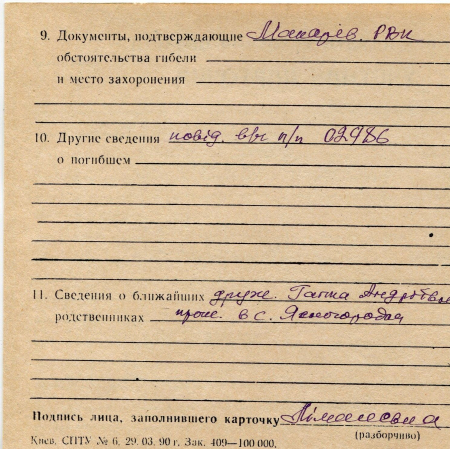 9. Документы, подтверждающие Макарів. РВК
обстоятельства гибели
и место захоронения
10. Другие сведения повід. в/ч п/п 02986
о погибшем
11. Сведения о ближайших друж. Ганна Андріївна
родственниках прож. в с. Ясногородка
Подпись лица, заполнившего карточку
(разборчиво)
Киев. СПТУ № 6. 29. 03. 90 г. Зак. 409—100 000.